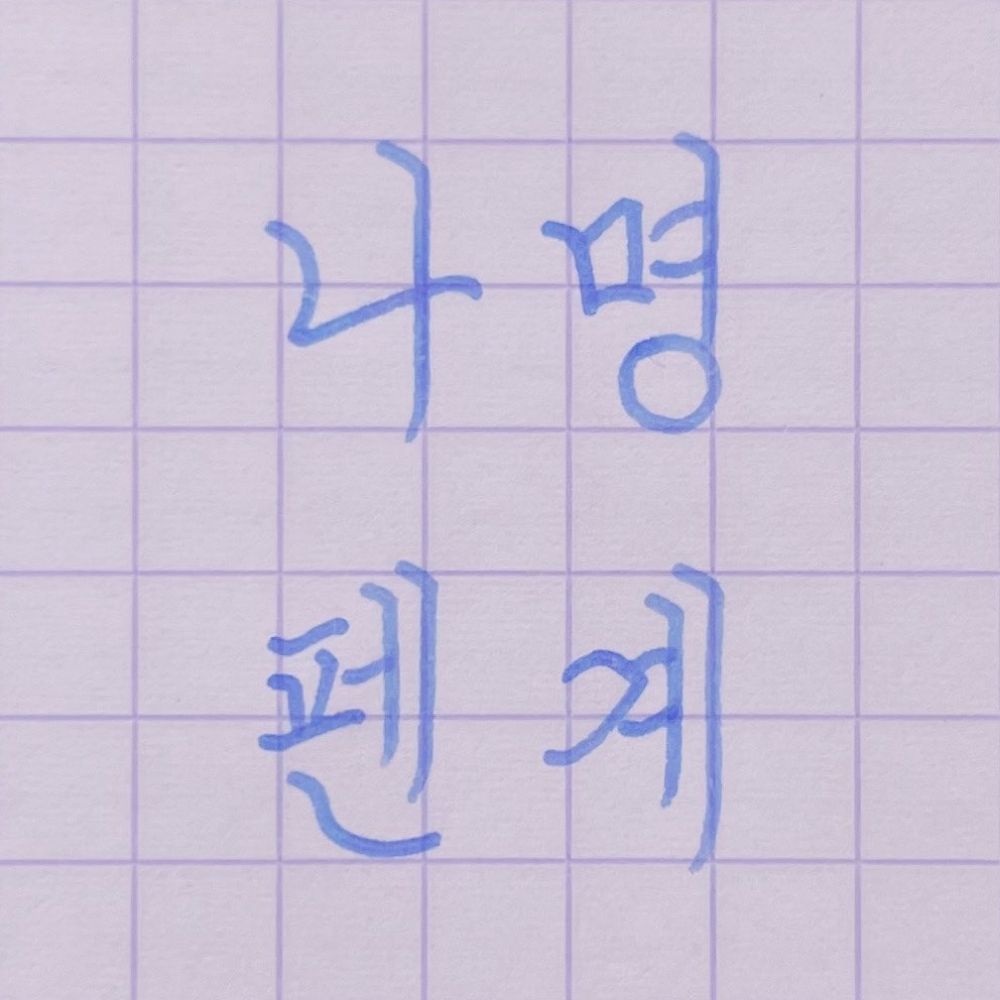 나명
펜계